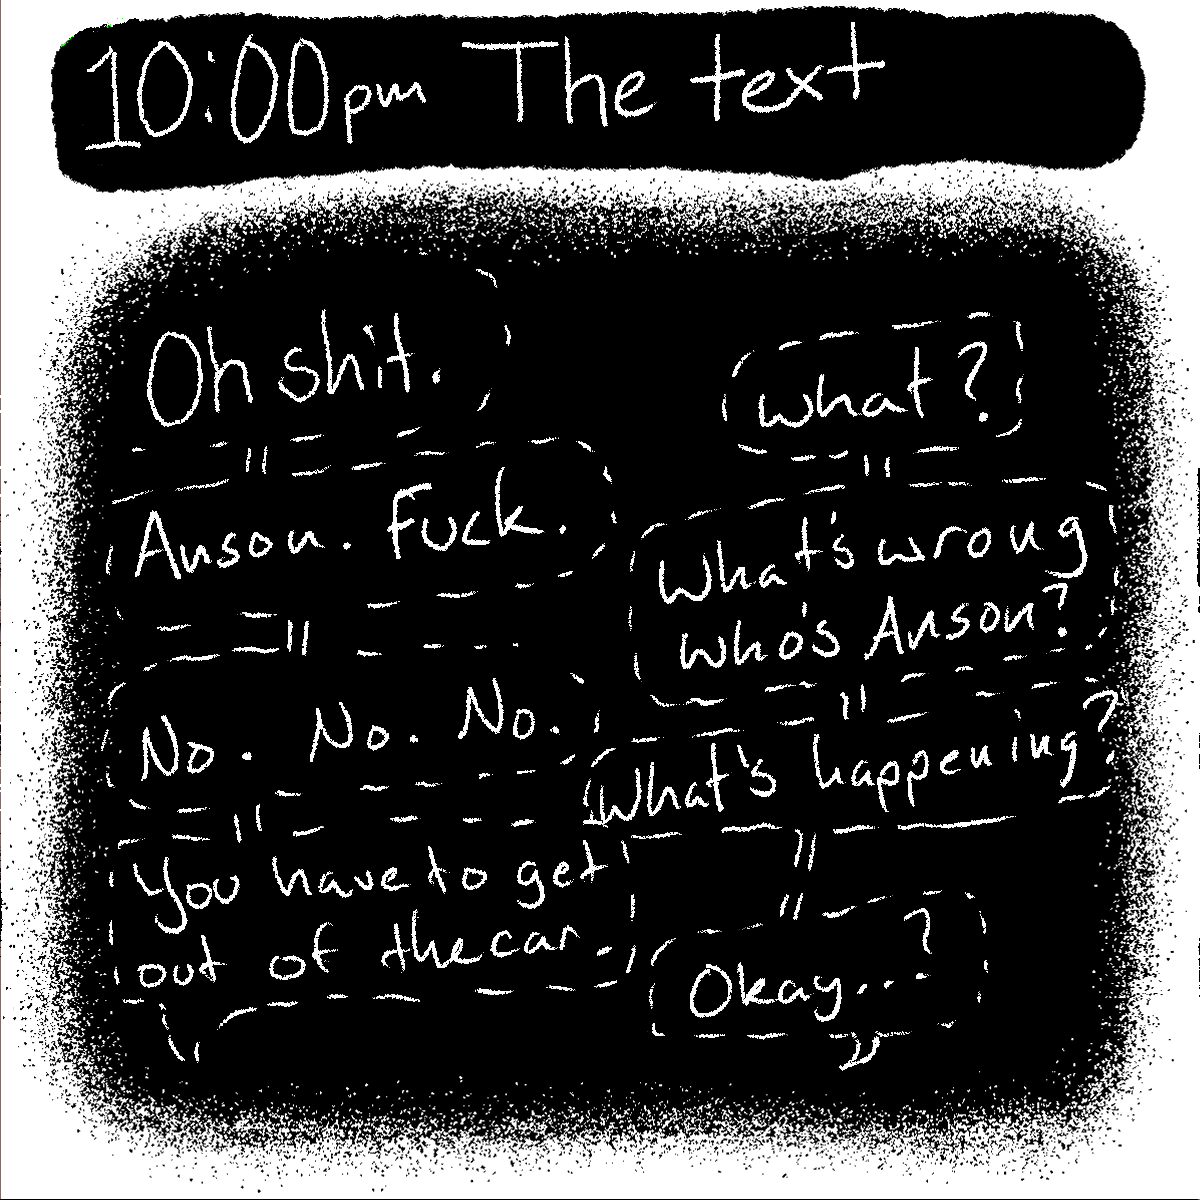 10:00pm The text
Oh shit.
what?
Anson. Fuck.
What's wrong
who's Anson?
No. No. No.
What's happening?
You have to get
out of the car.
Okay...?